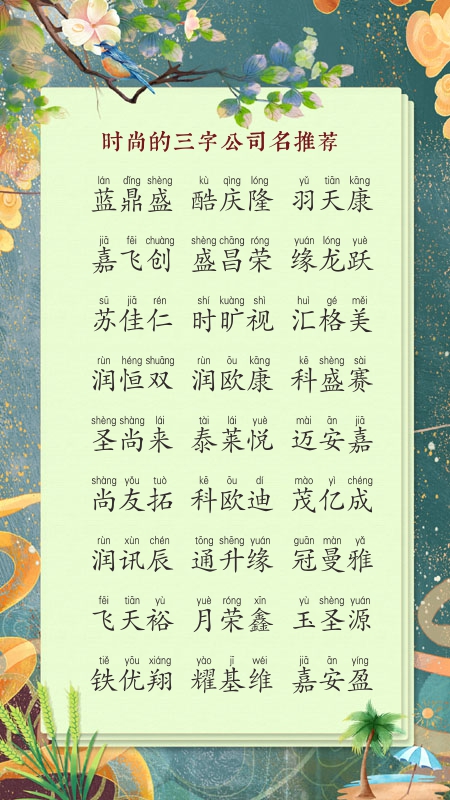 时尚的三字公司名推荐
lán dǐng shèng kù qìng lóng yǔ tiān kāng
蓝鼎盛 酷庆隆 羽天康
jiā fēi chuàng shèng chāng róng yuán lóng yuè
嘉飞创 盛昌荣 缘龙跃
sū jiā rén shí kuàng shì huì gé měi
苏佳仁 时旷视 汇格美
rùn héng shuāng rùn ōu kāng kē shèng sài
润恒双 润欧康 科盛赛
shèng shàng lái tài lái yuè mài ān jiā
圣尚来 泰莱悦 迈安嘉
shàng yǒu tuò kē ōu dí mào yì chéng
尚友拓 科欧迪 茂亿成
rùn xùn chén tōng shēng yuán guān màn yǎ
润讯辰 通升缘 冠曼雅
fēi tiān yù yuè róng xīn yù shèng yuán
飞天裕 月荣鑫 玉圣源
tiě yōu xiáng yào jī wéi jiā ān yíng
铁优翔 耀基维 嘉安盈